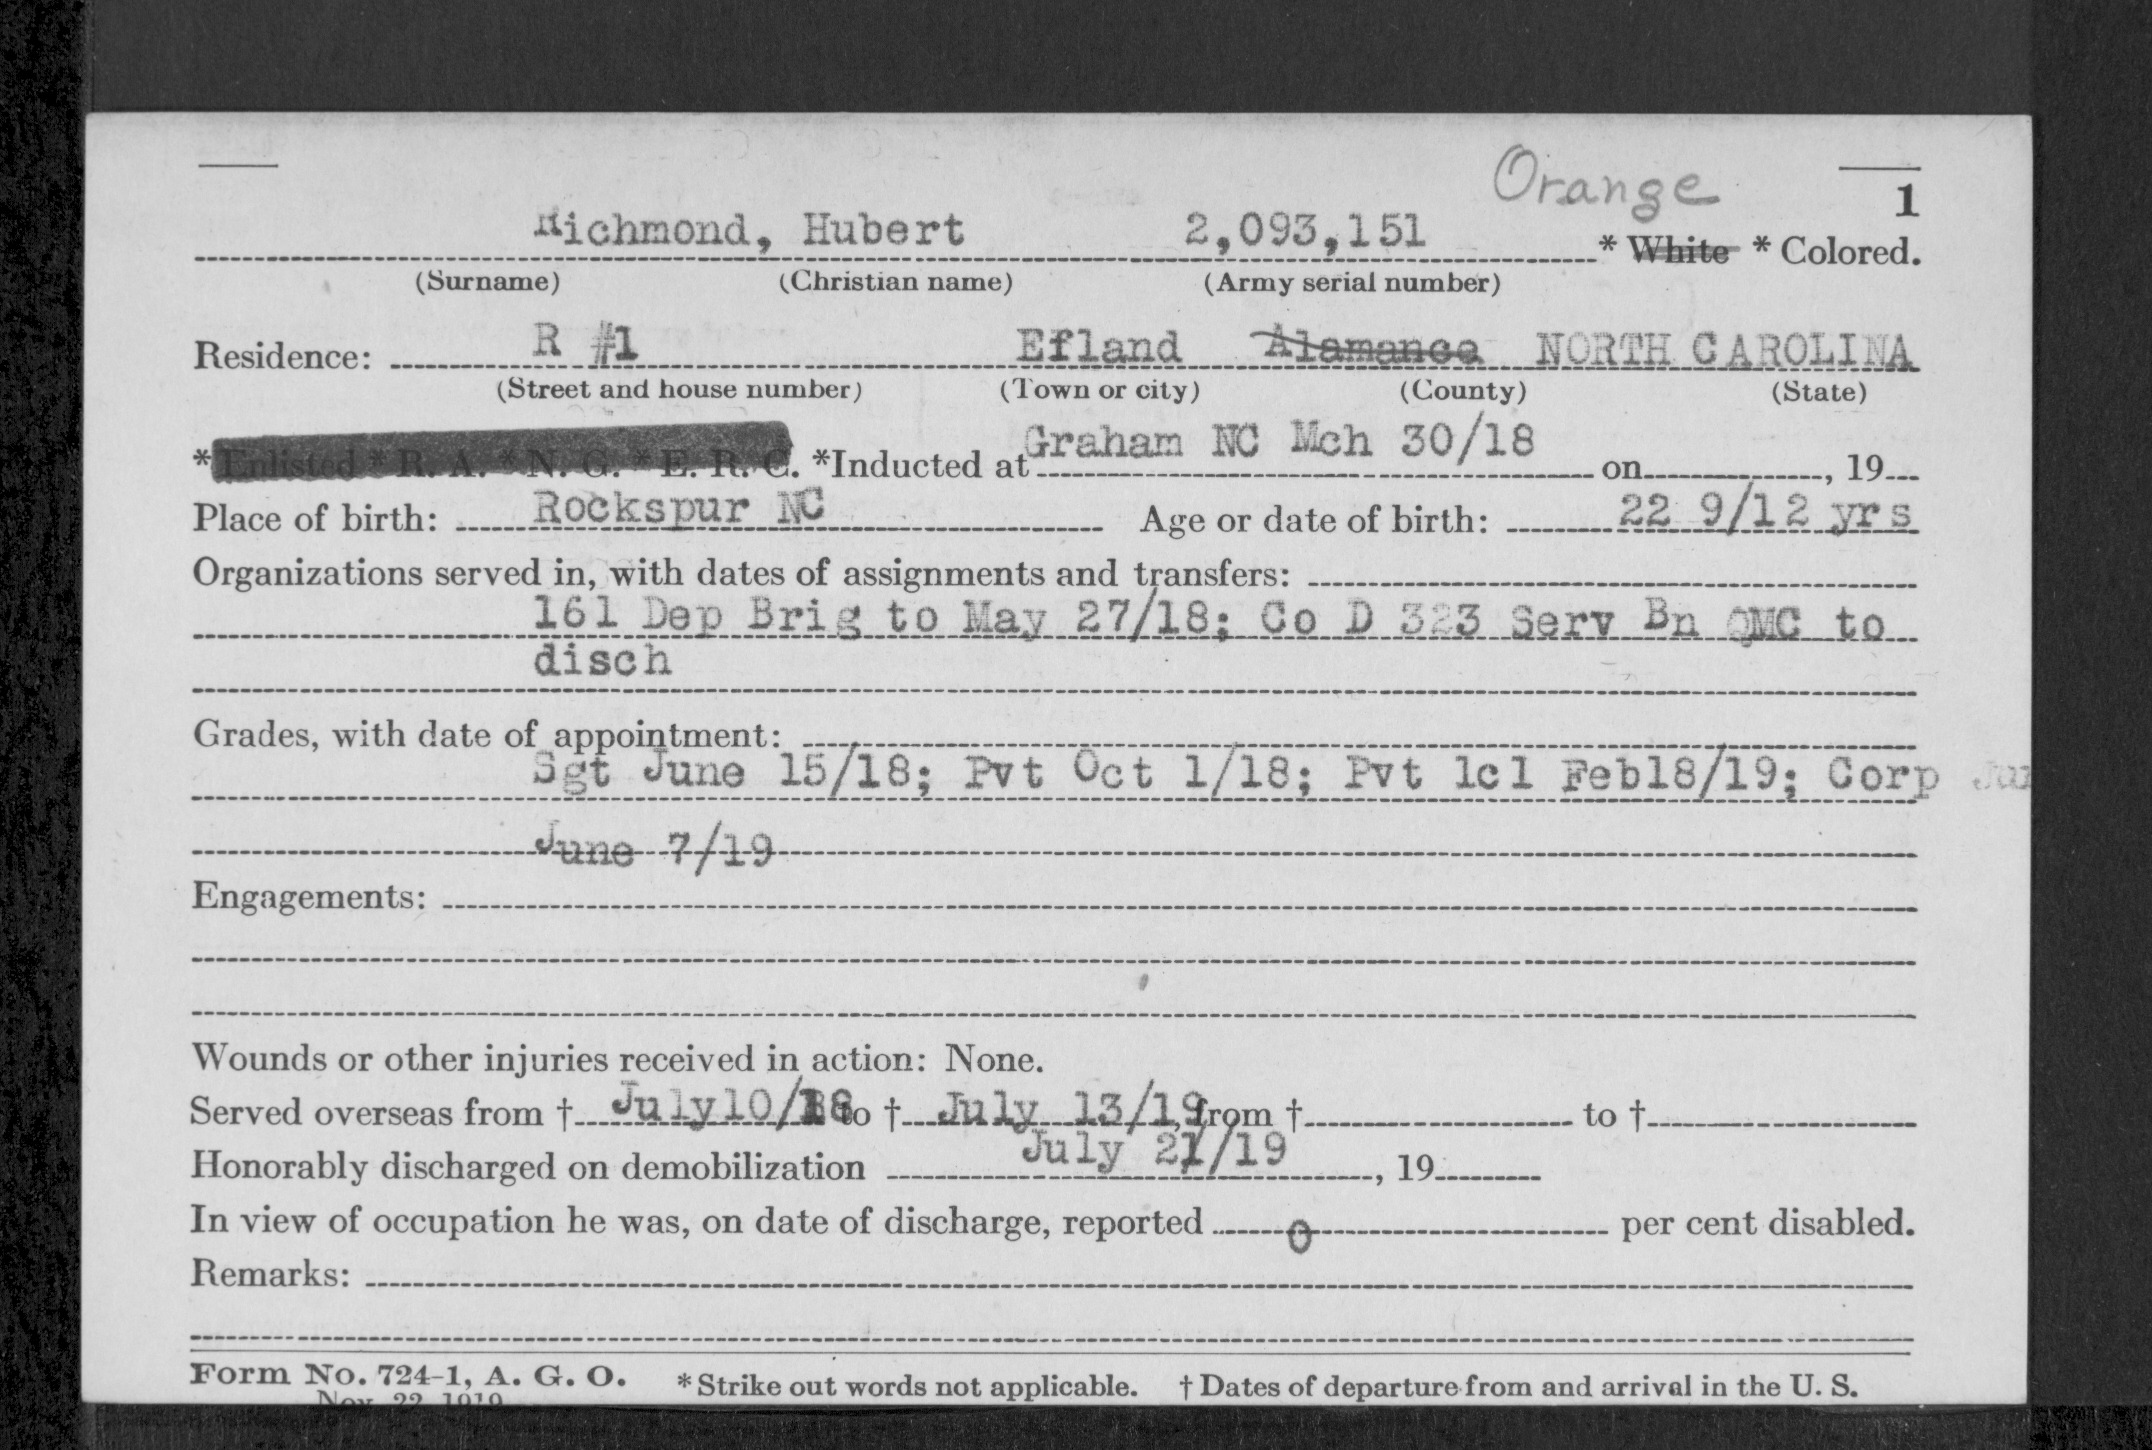 Orange
1
Richmond, Hubert 2,093,151 * White * Colored.
(Surname) (Christian name) (Army serial number)
Residence: R #1 Efland Alamance NORTH CAROLINA
(Street and house number) (Town or city) (County) (State)
* Enlisted * R. A. * N. G. * E. R. C. *Inducted at Graham NC Mch 30/18 on , 19
Place of birth: Rockspur NC Age or date of birth: 22 9/12 yrs
Organizations served in, with dates of assignments and transfers:
161 Dep Brig to May 27/18; Co D 323 Serv Bn QMC to
disch
Grades, with date of appointment:
Sgt June 15/18; Pvt Oct 1/18; Pvt 1cl Feb18/19; Corp
June 7/19
Engagements:
Wounds or other injuries received in action: None.
Served overseas from † July10/18 to † July 13/19, from † to †
Honorably discharged on demobilization July 21/19, 19
In view of occupation he was, on date of discharge, reported 0 per cent disabled.
Remarks:
Form No. 724-1, A. G. O. *Strike out words not applicable. † Dates of departure from and arrival in the U. S.
Nov. 22, 1919